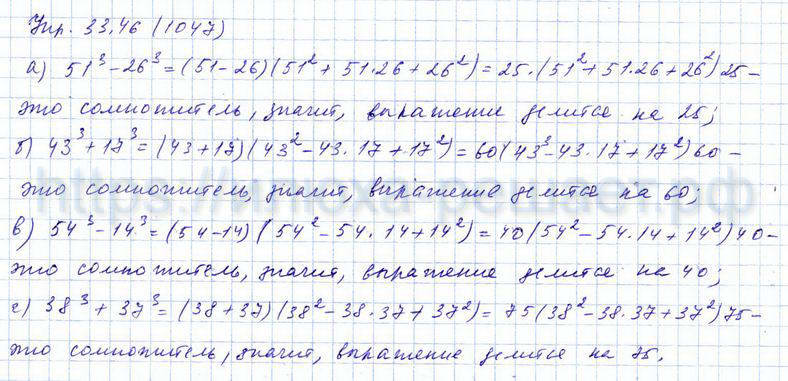 Упр. 33.46 (1047)
а) 51³ - 26³ = (51 - 26)(51² + 51·26 + 26²) = 25·(51² + 51·26 + 26²) 25 -
это сомножитель, значит, выражение делится на 25;
б) 43³ + 17³ = (43 + 17)(43² - 43·17 + 17²) = 60(43³ - 43·17 + 17²) 60 -
это сомножитель, значит, выражение делится на 60;
в) 54³ - 14³ = (54 - 14)(54² - 54·14 + 14²) = 40(54² - 54·14 + 14²) 40 -
это сомножитель, значит, выражение делится на 40;
г) 38³ + 37³ = (38 + 37)(38² - 38·37 + 37²) = 75(38² - 38·37 + 37²) 75 -
это сомножитель, значит, выражение делится на 75.